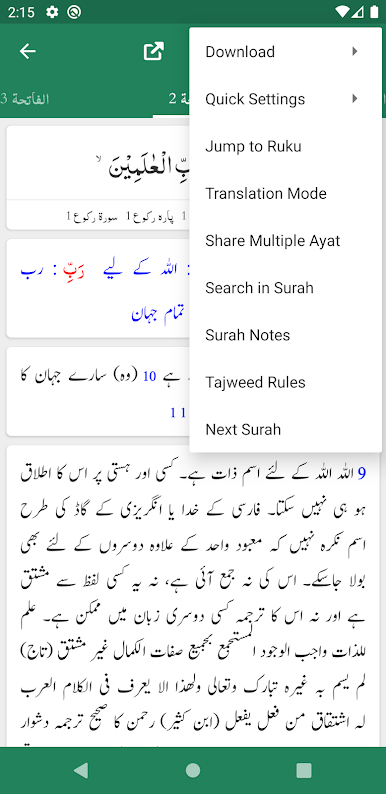 2:15
الفاتحة 3
2
Download
Quick Settings
Jump to Ruku
Translation Mode
Share Multiple Ayat
Search in Surah
Surah Notes
Tajweed Rules
Next Surah
بِّ الْعٰلَمِيْنَ ۙ
1 پارہ رکوع 1 سورۃ رکوع 1
: اللہ کے لیے رَبِّ : رب
تمام جہان
ہے 10 (وہ) سارے جہان کا
11
9 اللہ اللہ کے لئے اسم ذات ہے۔ کسی اور ہستی پر اس کا اطلاق
ہو ہی نہیں سکتا۔ فارسی کے خدا یا انگریزی کے گاڈ کی طرح
اسم نکرہ نہیں کہ معبود واحد کے علاوہ دوسروں کے لئے بھی
بولا جاسکے۔ اس کی نہ جمع آئی ہے، نہ یہ کسی لفظ سے مشتق
ہے اور نہ اس کا ترجمہ کسی دوسری زبان میں ممکن ہے۔ علم
للذات واجب الوجود المستجمع بجمیع صفات الکمال غیر مشتق (تاج)
لم یسم بہ غیرہ تبارک وتعالی ولھذا الا یعرف فی الکلام العرب
لہ اشتقاق من فعل یفعل (ابن کثیر) رحمن کا صحیح ترجمہ دشوار